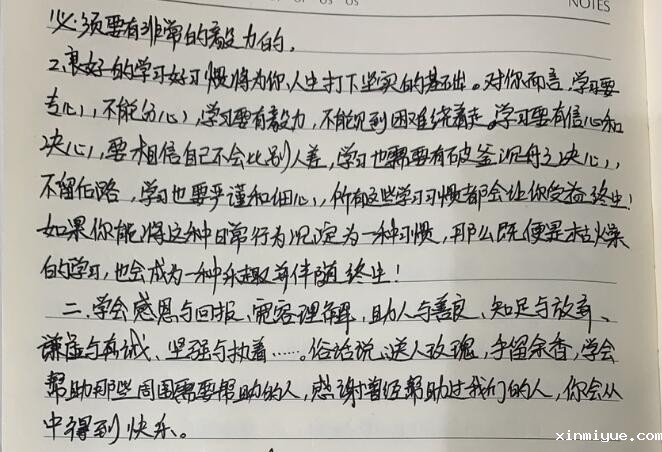 NOTES
必须要有非常的毅力的。
2.良好的学习好习惯将为你人生打下坚实的基础。对你而言,学习要
专心,不能分心,学习要有毅力,不能见到困难绕着走。学习要有信心和
决心,要相信自己不会比别人差,学习也需要有破釜沉舟之决心,
不留后路,学习也要严谨和细心,所有这些学习习惯都会让你受益终生!
如果你能将这种日常行为沉淀为一种习惯,那么既便是枯燥
的学习,也会成为一种乐趣并伴随终生!
二.学会感恩与回报、宽容理解、助人与善良、知足与放弃、
谦虚与真诚、坚强与执着……。俗话说,送人玫瑰,手留余香,学会
帮助那些周围需要帮助的人,感谢曾经帮助过我们的人,你会从
中得到快乐。
xinmiyue.com